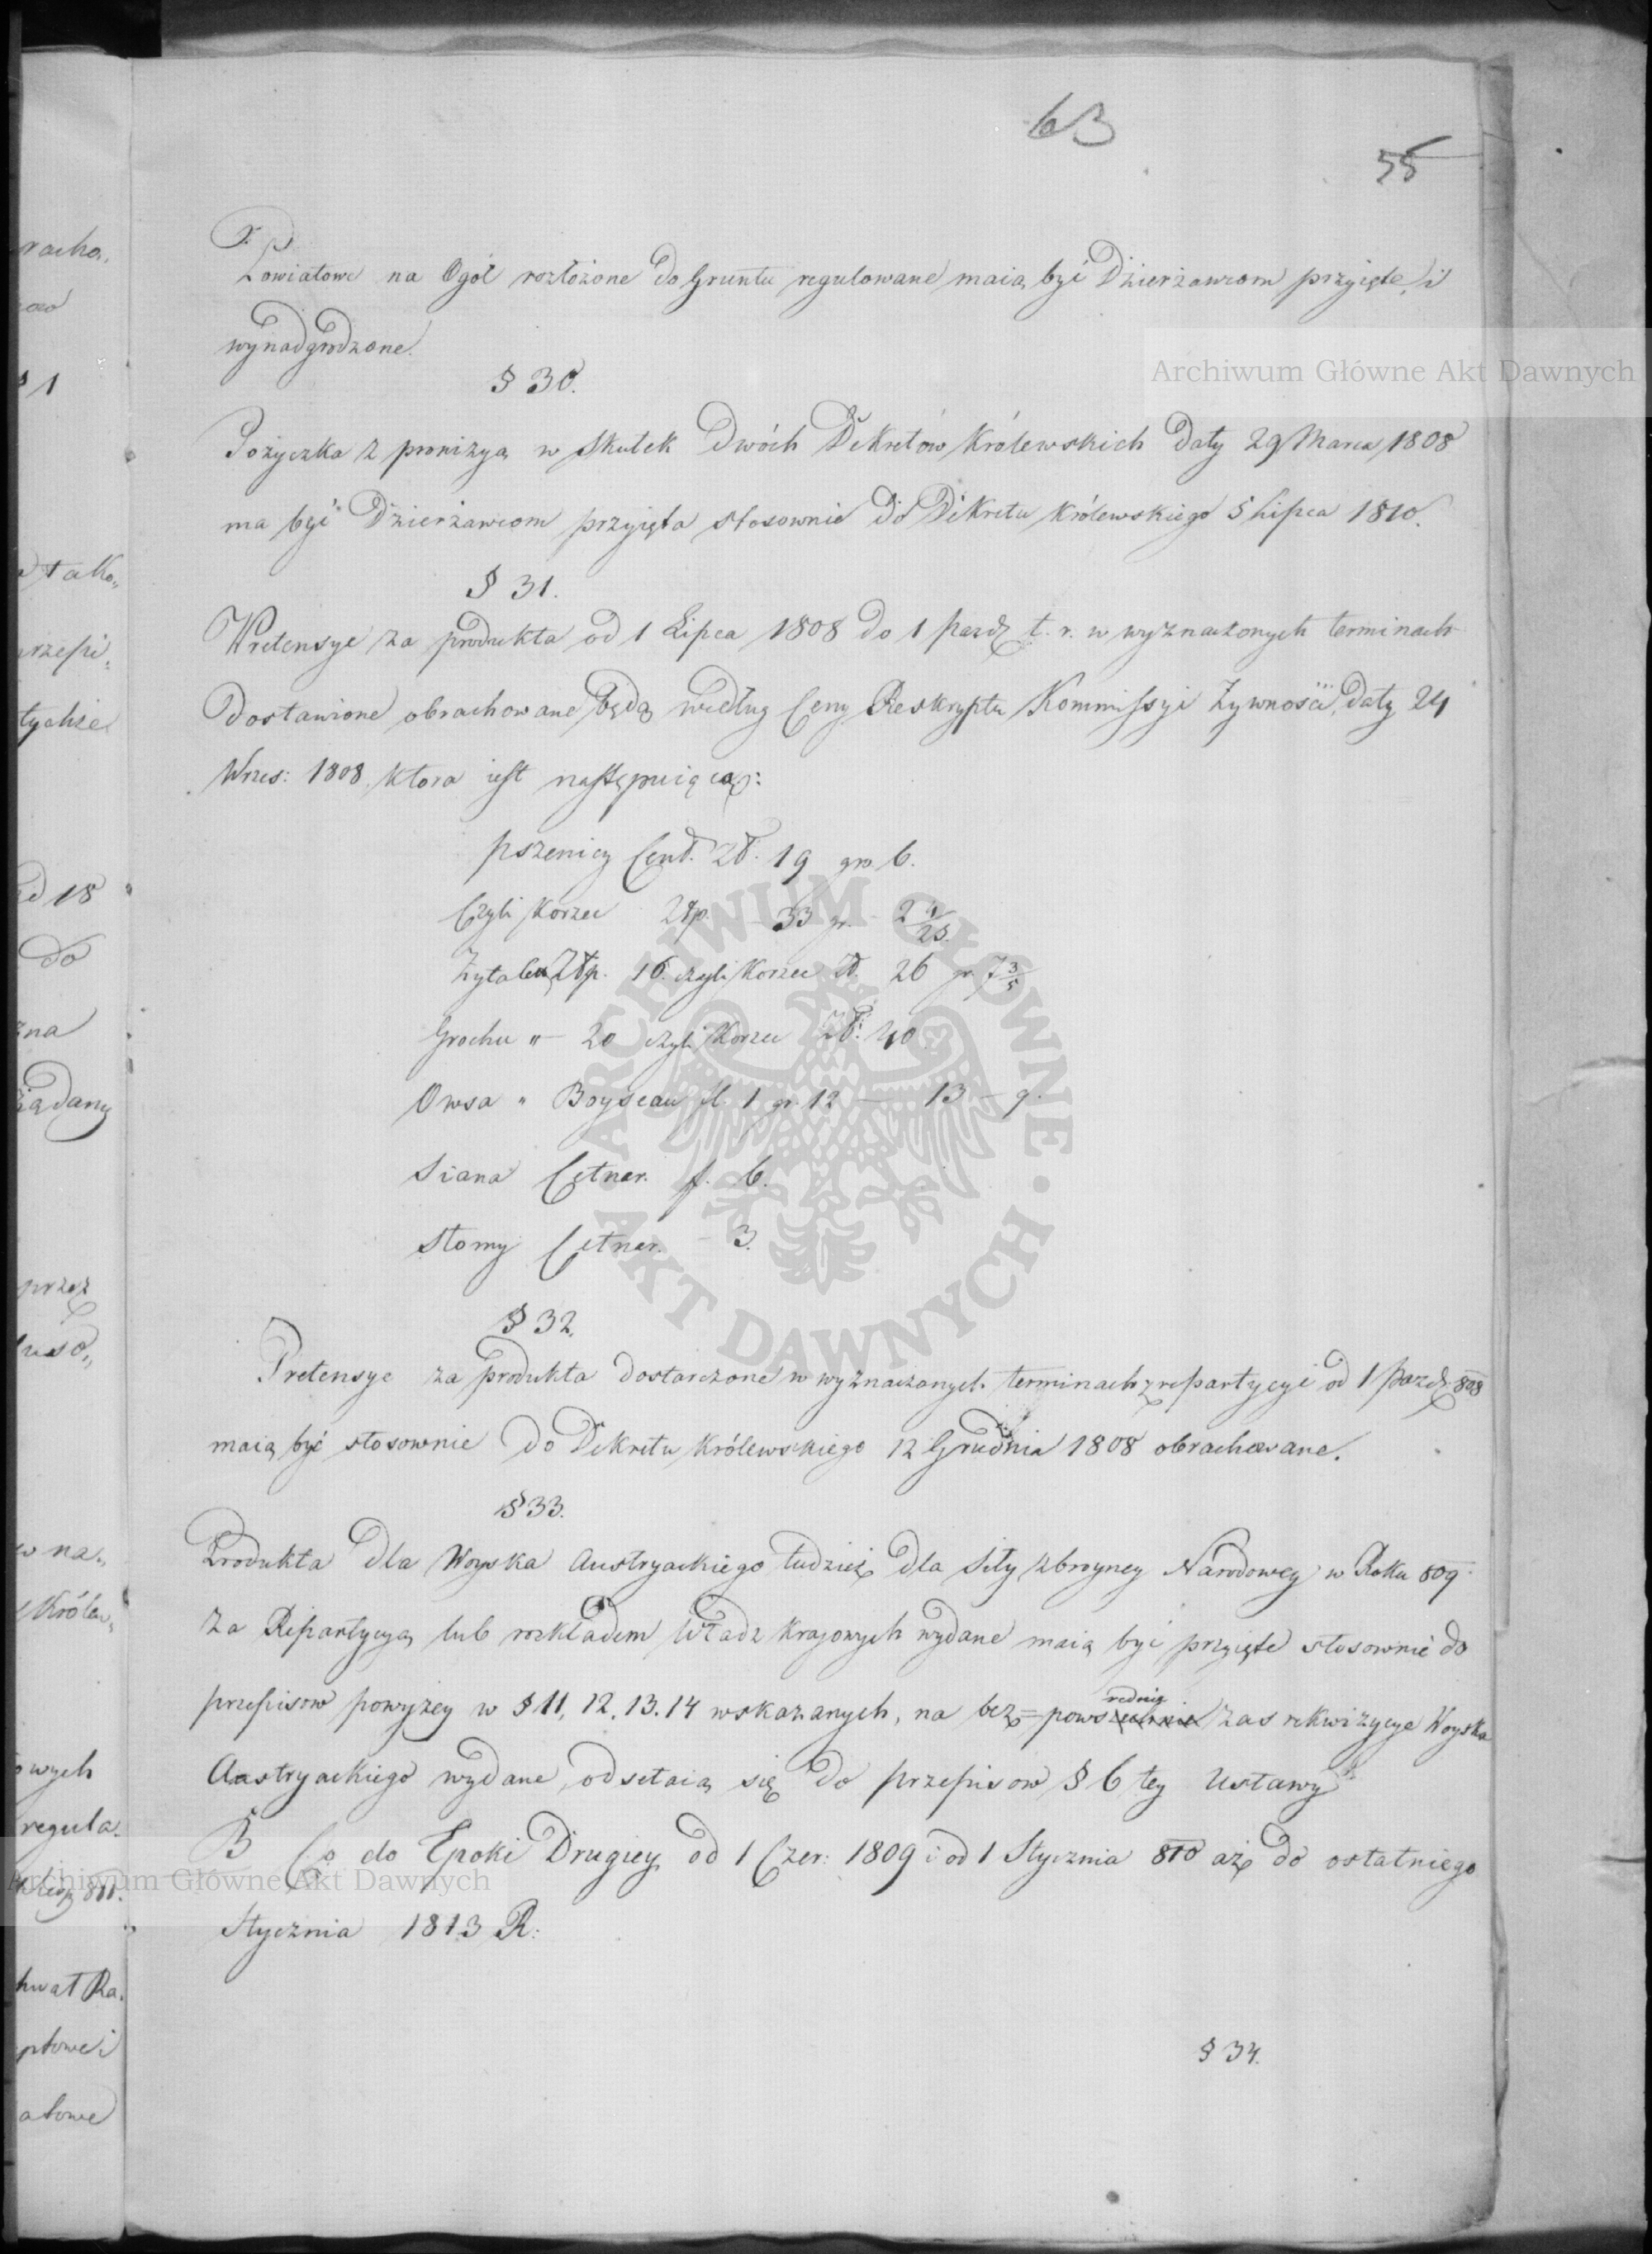 63
55
Powiatowe na Ogół rozłożone do Gruntu regulowane maią być Dzierżawcom przyięte, i
wynadgrodzone.
§ 30.
Pożyczka z prowizyą w skutek Dwóch Dekretów Królewskich Daty 29 Marca 1808
ma być Dzierżawcom przyięta stosownie do Dekretu Królewskiego 5 Lipca 1810.
§ 31.
Pretensye za produkta od 1 Lipca 1808 do 1 Pazdz. t. r. w wyznaczonych terminach
dostawione obrachowane będą według Ceny Reskryptu Kommissyi Żywności, daty 24
Wrzes: 1808 ktora iest następuiąca:
pszenicy Cent. Zł. 19 gr. 6.
Czyli Korzec Złp. 33 gr. 2 4/25
Zyta Złp. 16. czyli Korzec Zł. 26 gr 7 3/5
Grochu " — 20 czyli Korzec Zł: 40.
Owsa " Boyseau fl. 1 gr. 12 — 13 — 9.
Siana Cętnar. f. 6.
Słomy Cętnar. — 3.
§ 32.
Pretensye za produkta dostarczone w wyznaczonych terminach z repartycyi od 1 Pazdz. 808
maią być stosownie do Dekretu Królewskiego 12 Grudnia 1808 obrachowane.
§ 33.
Produkta dla Woyska Austryackiego tudzież dla Siły zbroyney Narodowey w Roku 809
za Repartycyą lub rozkładem Władz Krajowych wydane maią być przyięte stosownie do
przepisow powyżey w § 11, 12, 13. 14 wskazanych, na bez=pows rednią zas rekwizycye Woyska
Austryackiego wydane, odsełaią się do przepisow § 6 tey Ustawy
B Co do Epoki Drugiey od 1 Czer: 1809 i od 1 Stycznia 810 aż do ostatniego
Stycznia 1813 R:
§ 34.
racho,
§ 1
tako,,
przepi,
tychże
do
zna
żądany
przez
w na,,
Królew,,
owych
regula,
811.
Archiwum Główne Akt Dawnych
ARCHIWUM GŁÓWNE · AKT DAWNYCH ·
Archiwum Główne Akt Dawnych